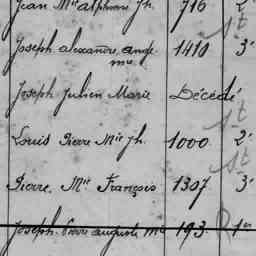 Jean Mie alphonse Jh. 716 2e
Joseph alexandre ange 1410 3e
mie
Joseph Julien Marie Décédé
Louis Pierre Mie Jh. 1000. 2e
Pierre Mie François 1307 3e
Joseph Pierre auguste Mie 193. 1er